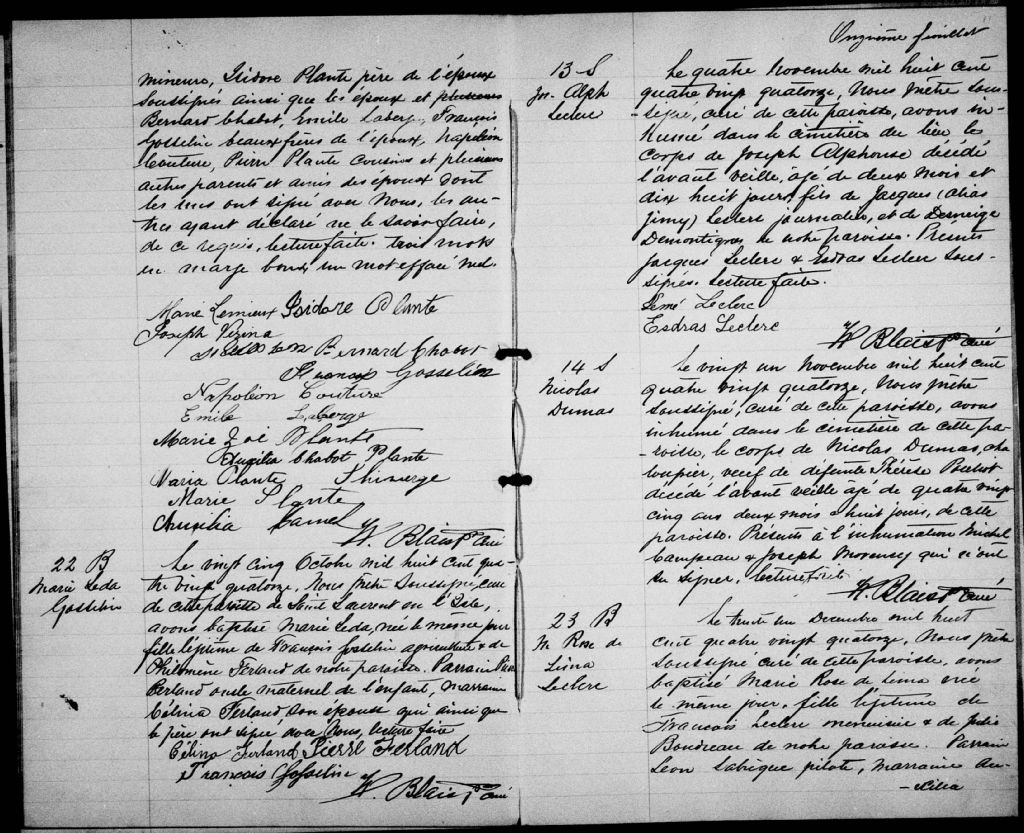 mineurs, Isidore Plante père de l'époux
soussignés ainsi que les époux et plusieurs
Bernard Chabot, Emile Laberge, François
Gosselin beaux frères de l'époux, Napoléon
Couture, Pierre Plante cousins et plusieurs
autres parents et amis des époux dont
les uns ont signé avec Nous, les au-
tres ayant déclaré ne le savoir faire,
de ce requis, lecture faite. trois mots
en marge bons un mot effacé nul.
Marie Lemieux Isidore Plante
Joseph Vezina
Bernard Chabot
François Gosselin
Napoléon Couture
Emile Laberge
Marie Zoé Plante
Auxilia Chabot Plante
Maria Plante Thivierge
Marie Plante
Auxilia
W. Blais Ptre curé
22 B
Marie Leda
Gosselin
Le vingt cinq Octobre mil huit cent qua-
tre vingt quatorze, Nous Prêtre Soussigné, curé
de cette paroisse de Saint Laurent en l'Isle,
avons baptisé Marie Leda, née le même jour
fille légitime de François Gosselin agriculteur & de
Philomène Ferland de notre paroisse. Parrain Pierre
Ferland oncle maternel de l'enfant, marraine
Célina Ferland son épouse qui ainsi que
le père ont signé avec Nous, lecture faite
Célina Ferland Pierre Ferland
François Gosselin
W. Blais Ptre curé
Onzième feuillet
13 S
Jos. Alph
Leclerc
Le quatre Novembre mil huit cent
quatre vingt quatorze, Nous Prêtre sous-
-signé, curé de cette paroisse, avons in-
humé dans le cimetière du lieu le
corps de Joseph Alphonse décédé
l'avant veille, âgé de deux mois et
dix huit jours, fils de Jacques (alias
Jimy) Leclerc journalier, et de Demerise
Demontigny de notre paroisse. Présents
Jacques Leclerc & Esdras Leclerc sous-
signés. Lecture faite.
Jémé Leclerc
Esdras Leclerc
W Blais Ptre curé
14 S
Nicolas
Dumas
Le vingt un Novembre mil huit cent
quatre vingt quatorze, Nous Prêtre
soussigné, curé de cette paroisse, avons
inhumé dans le cimetière de cette pa-
-roisse, le corps de Nicolas Dumas, cha
loupier, veuf de défunte Thérèse
décédé l'avant veille âgé de quatre vingt
cinq ans deux mois & huit jours, de cette
paroisse. Présents à l'inhumation Michel
Campeau & Joseph Morency qui n'ont
su signer, lecture faite
W. Blais Ptre curé
23 B
M Rose de
Lima
Leclerc
Le trente un Decembre mil huit
cent quatre vingt quatorze, Nous Prêtre
soussigné curé de cette paroisse, avons
baptisé Marie Rose de Lima née
le même jour, fille légitime de
François Leclerc menuisier & de Julie
Boudreau de notre paroisse. Parrain
Leon Labrèque pilote, marraine Au-
-xilia